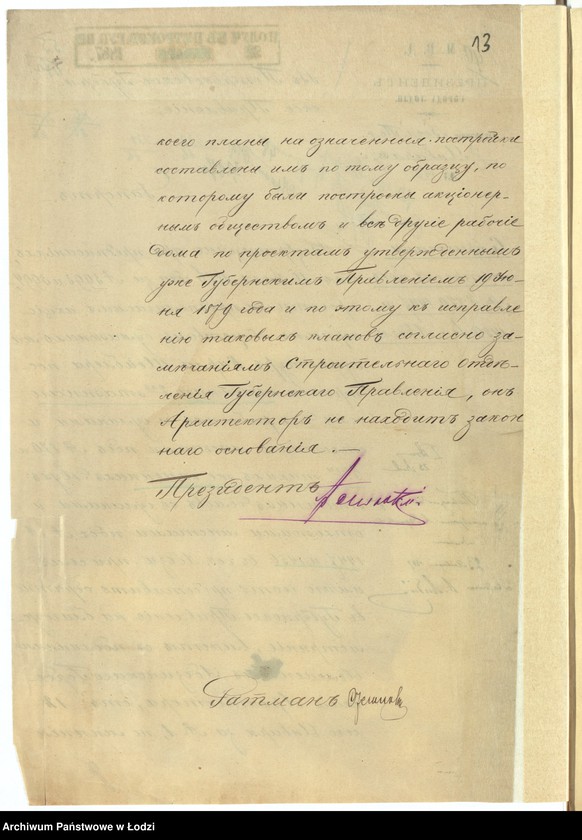 13
коего планы на означенныя постройки
составлены имъ по тому образцу, по
которому были построены акціонер-
нымъ обществомъ и всѣ другіе рабочіе
дома по проектамъ утвержденнымъ
уже Губернскимъ Правленіемъ 19 Ію-
ня 1879 года и по этому къ исправле
нію таковыхъ плановъ согласно за-
мѣчаніямъ Строительнаго отдѣ-
ленія Губернскаго Правленія, онъ
Архитекторъ не находитъ закон
наго основанія. —
Президентъ
Archiwum Państwowe w Łodzi